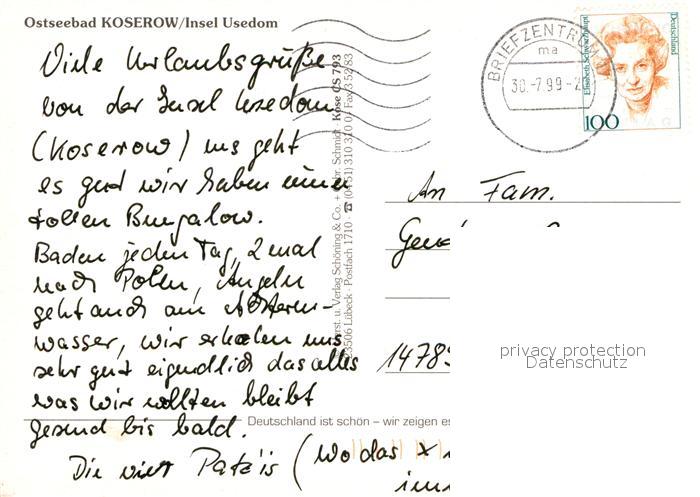 Ostseebad KOSEROW/Insel Usedom
Viele Urlaubsgrüße
von der Insel Usedom
(Koserow) uns geht
es gut wir haben einen
tollen Bungalow.
Baden jeden Tag, 2 mal
nach Polen, Angeln
geht auch am
wasser, wir erholen uns
sehr gut eigendlich das alles
was wir wollten bleibt
gesund bis bald.
Die vier (wo das x
Deutschland ist schön – wir zeigen es
Schöning & Co. + Gebr. Schmidt · Kose CS 793
Lübeck · Postfach 1710 · ☎ (04 51) 310 310 · Fax 3 52 83
BRIEFZENTRUM
ma
30.-7.99-
Elisabeth Schwarzhaupt
Deutschland
100
An Fam.
1478
privacy protection
Datenschutz